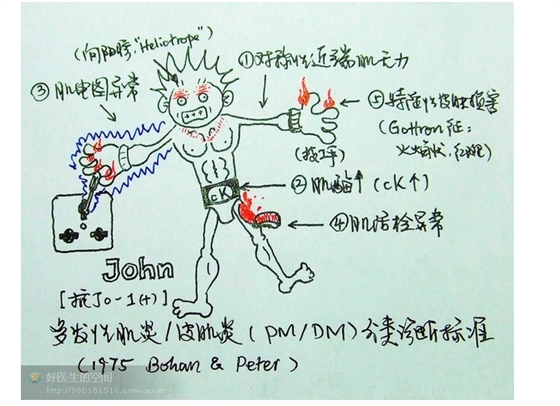 (向阳疹:"Heliotrope")
①对称性近端肌无力
③肌电图异常
⑤特征性皮肤损害
(Gottron征:
火焰状,红斑)
(技工手)
②肌酶↑(CK↑)
CK
④肌活检异常
John
[抗Jo-1(+)]
多发性肌炎/皮肌炎(PM/DM)分类诊断标准
(1975 Bohan & Peter)
好医生的空间
http://980151516.qzone.qq.com